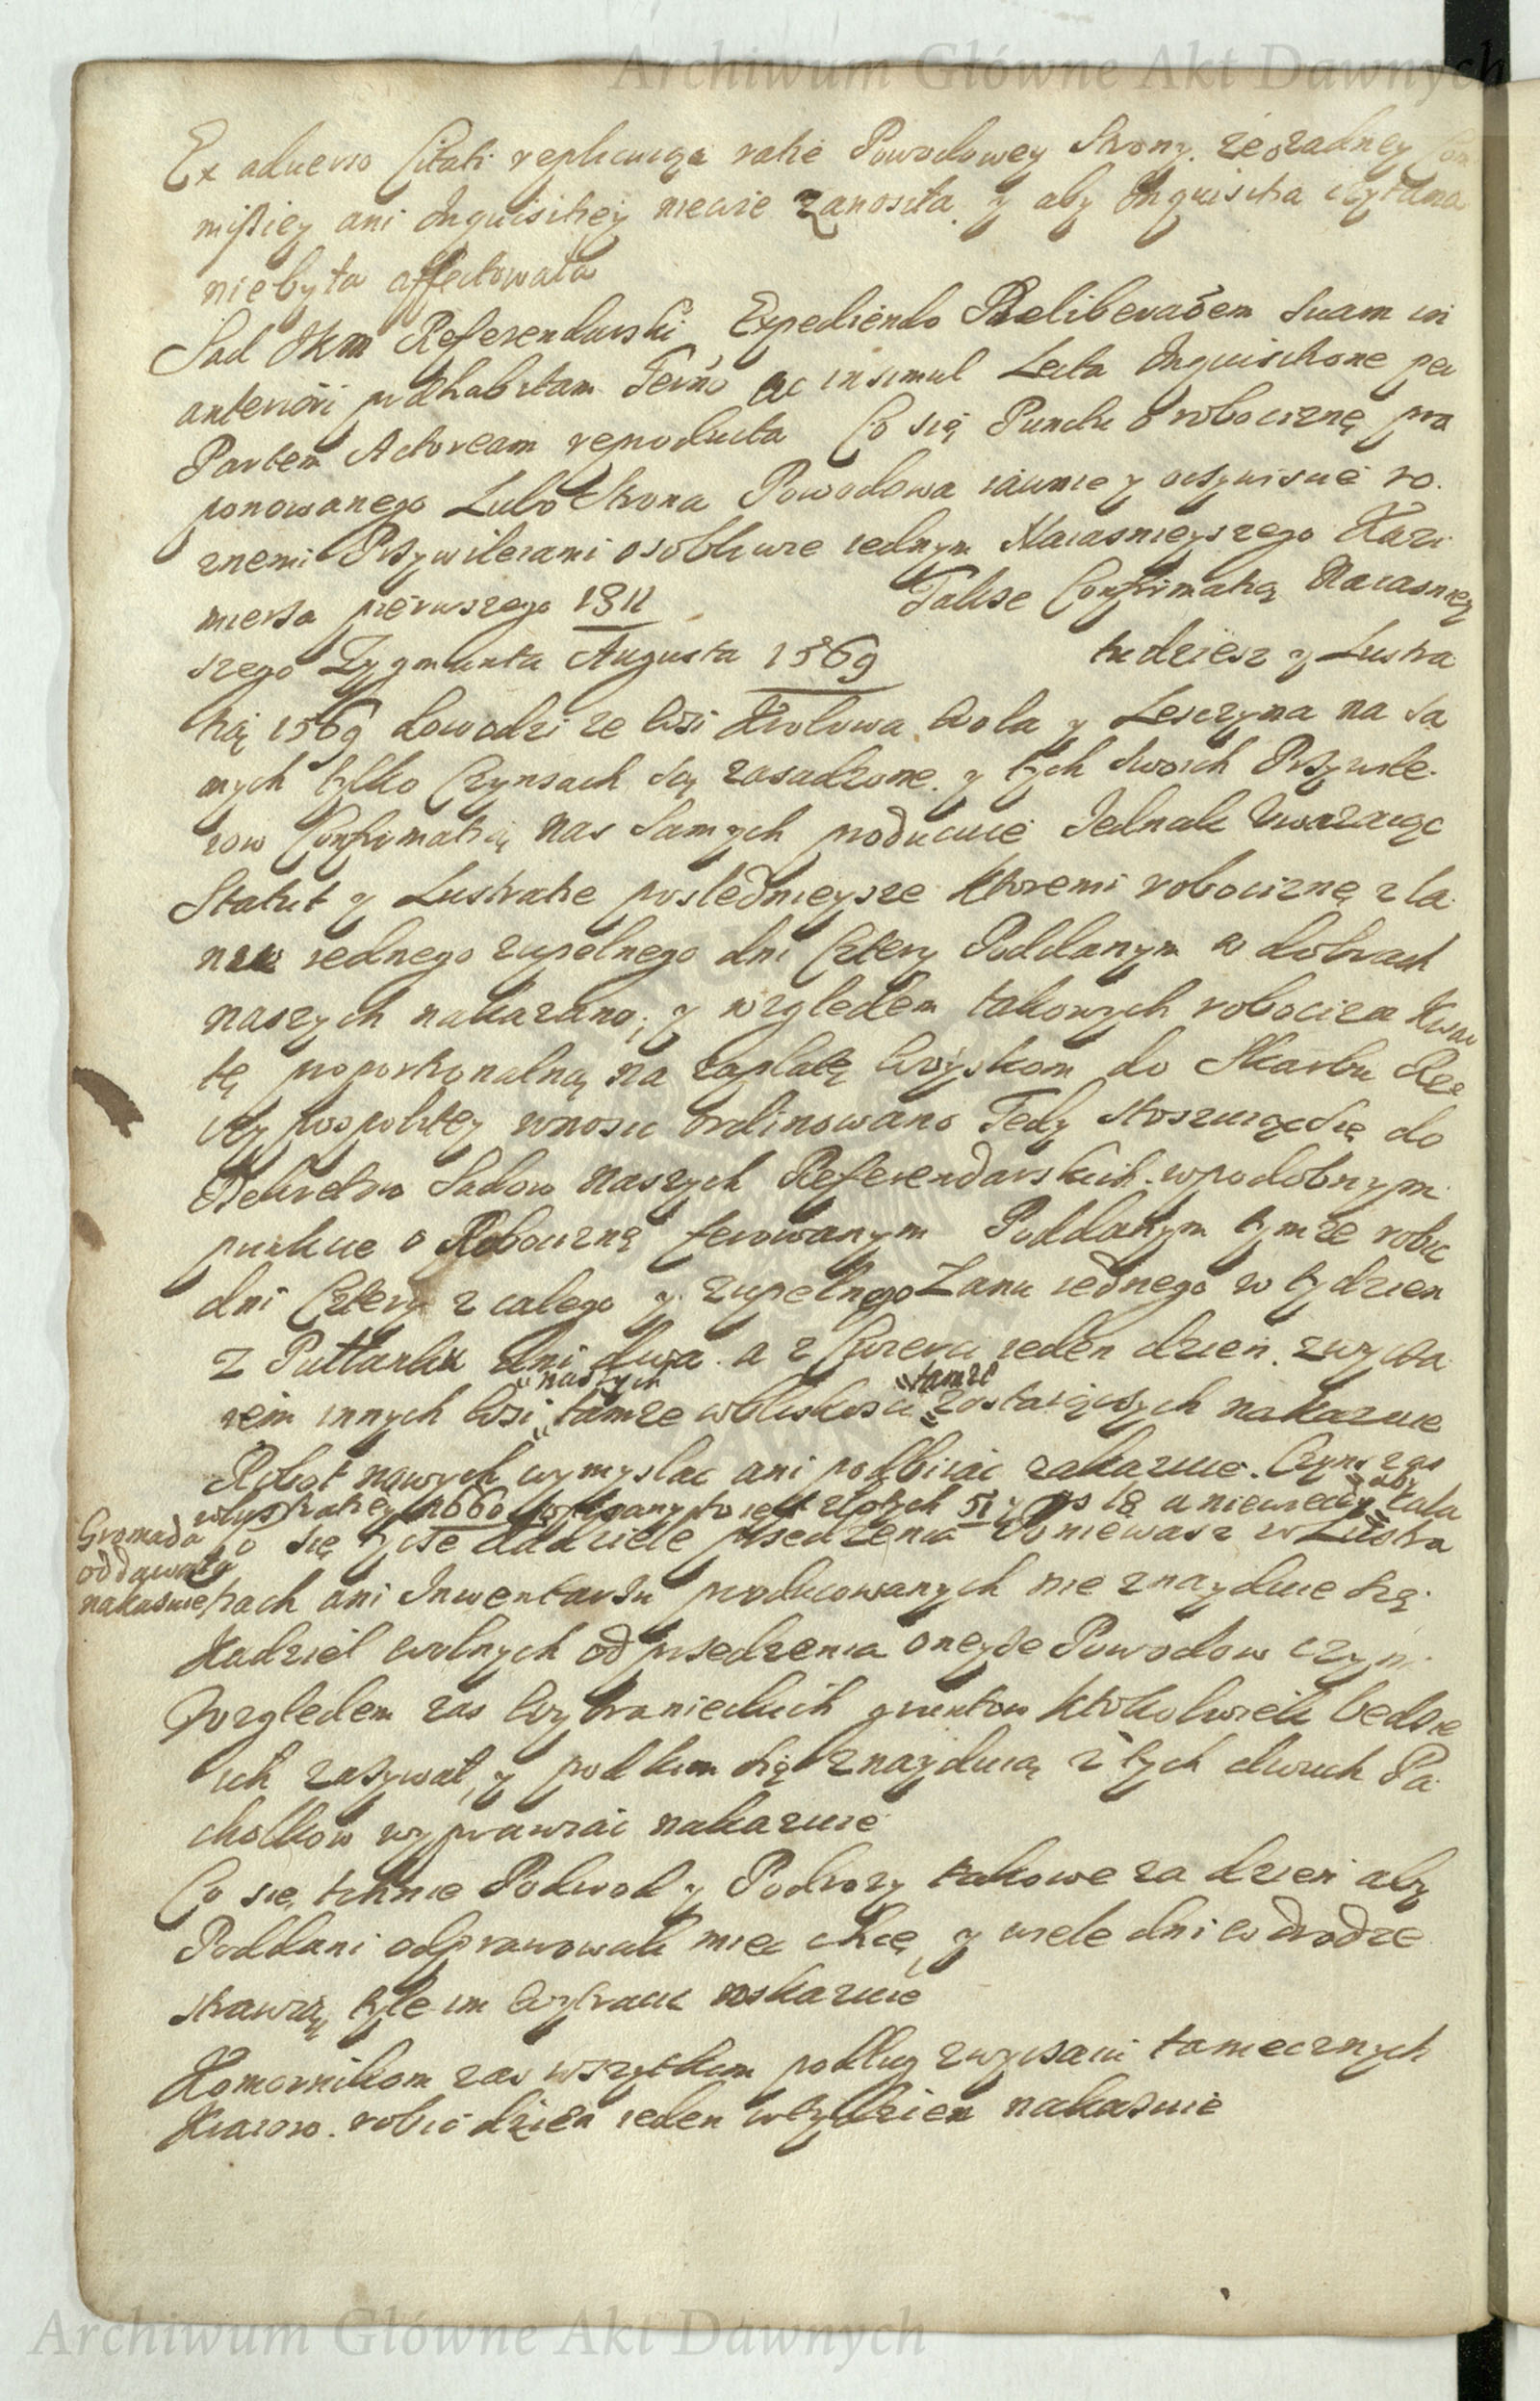 Archiwum Główne Akt Dawnych
Ex adverso Citati replicuiąc ratie Powodowey Strony, że o żadney Com
missiey ani Inquisitiey niewie zanosiła, y aby Inquisitia czytana
niebyła affectowała
Sąd JKM Referendarski Expediendo Deliberaōem suam in
anteriori pdhabitam Termo ac insimul Lecta Inquisitione per
Partem Actoream reproducta Co się Punctu o robociznę pro
ponowanego Lubo Strona Powodowa iawnie y oczywiscie ro
znemi Przywileiami osobliwie iednym Naiasnieyszego Kazi
mierza pierwszego 1311 Talise Confirmatią Naiasniey
szego Zygmunta Augusta 1569 tudziesz y Lustra
tią 1569 dowodzi ze wsi Krolowa Wola y Lesczyna na sa
mych tylko Czynsach są zasadzone y tych swoich Przywile
iow Confirmatią nas samych producuie Jednak uwazaiąc
Statut y Lustratie poslednieysze ktoremi robociznę z ła
nu iednego zupełnego dni Cztery Poddanym w dobrach
naszych nakazano, y względem takowych robocizn Kwar
tę proportionalną na zapłatę woyskom do Skarbu Rze
czy pospolitey wnosic ordinowano Tedy stosuiąc się do
Dekretow Sadow naszych Referendarskich w podobnym
punkcie o Robociznę ferowanym Poddanym tymze robic
dni Cztery z całego y zupełnego Łanu iednego w tydzien
z Pułłanku dni dwa a z Czwerci ieden dzien zwycza
naszych tamze
iem innych wsi tamze w bliskosci zostaiących nakazuie
Robot nowych wymyslac ani podbiiac zakazuie. Czynsz zas
w lustratiey 1660 opisany to iest złotych 51 y gs 18 a niewiecey aby cała
Gromada
oddawała
nakazuie
Co się tycze Kadziele przedzenia Poniewasz w Lustra
tiach ani Inwentarzu producowanych nie znayduie się
Kadziel wolnych od przedzenia oneyze Powodow czyni
Względem zas Wybranieckich gruntow ktokolwiek bedzie
ich zazywał, y pod kim się znayduią z tych dwuch Pa
chołkow wyprawiac nakazuie
Co się tchnie Podwod y Podrozy takowe za dzien aby
Poddani odprawowali miec chcę, y wiele dni w drodze
strawią tyle im wytrącic roskazuie
Komornikom zas wszytkim podług zwyczaiu tamecznych
Kraiow robic dzien ieden w tydzien nakazuie
Archiwum Główne Akt Dawnych